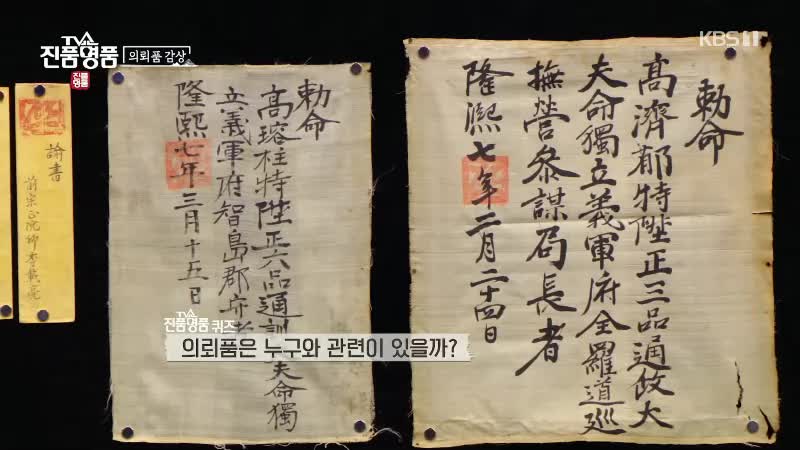 TV쇼
진품명품
의뢰품 감상
진품
명품
KBS 1
勅命
高濟 特陞正三品通政大
夫命獨立義軍府全羅道巡
撫營叅謀局長者
隆熙七年二月二十四日
勅命
高瑢柱特陞正六品通訓 夫命獨
立義軍府智島郡守
隆熙七年三月十五日
諭書
前宗正院卿李載
TV쇼
진품명품 퀴즈
의뢰품은 누구와 관련이 있을까?